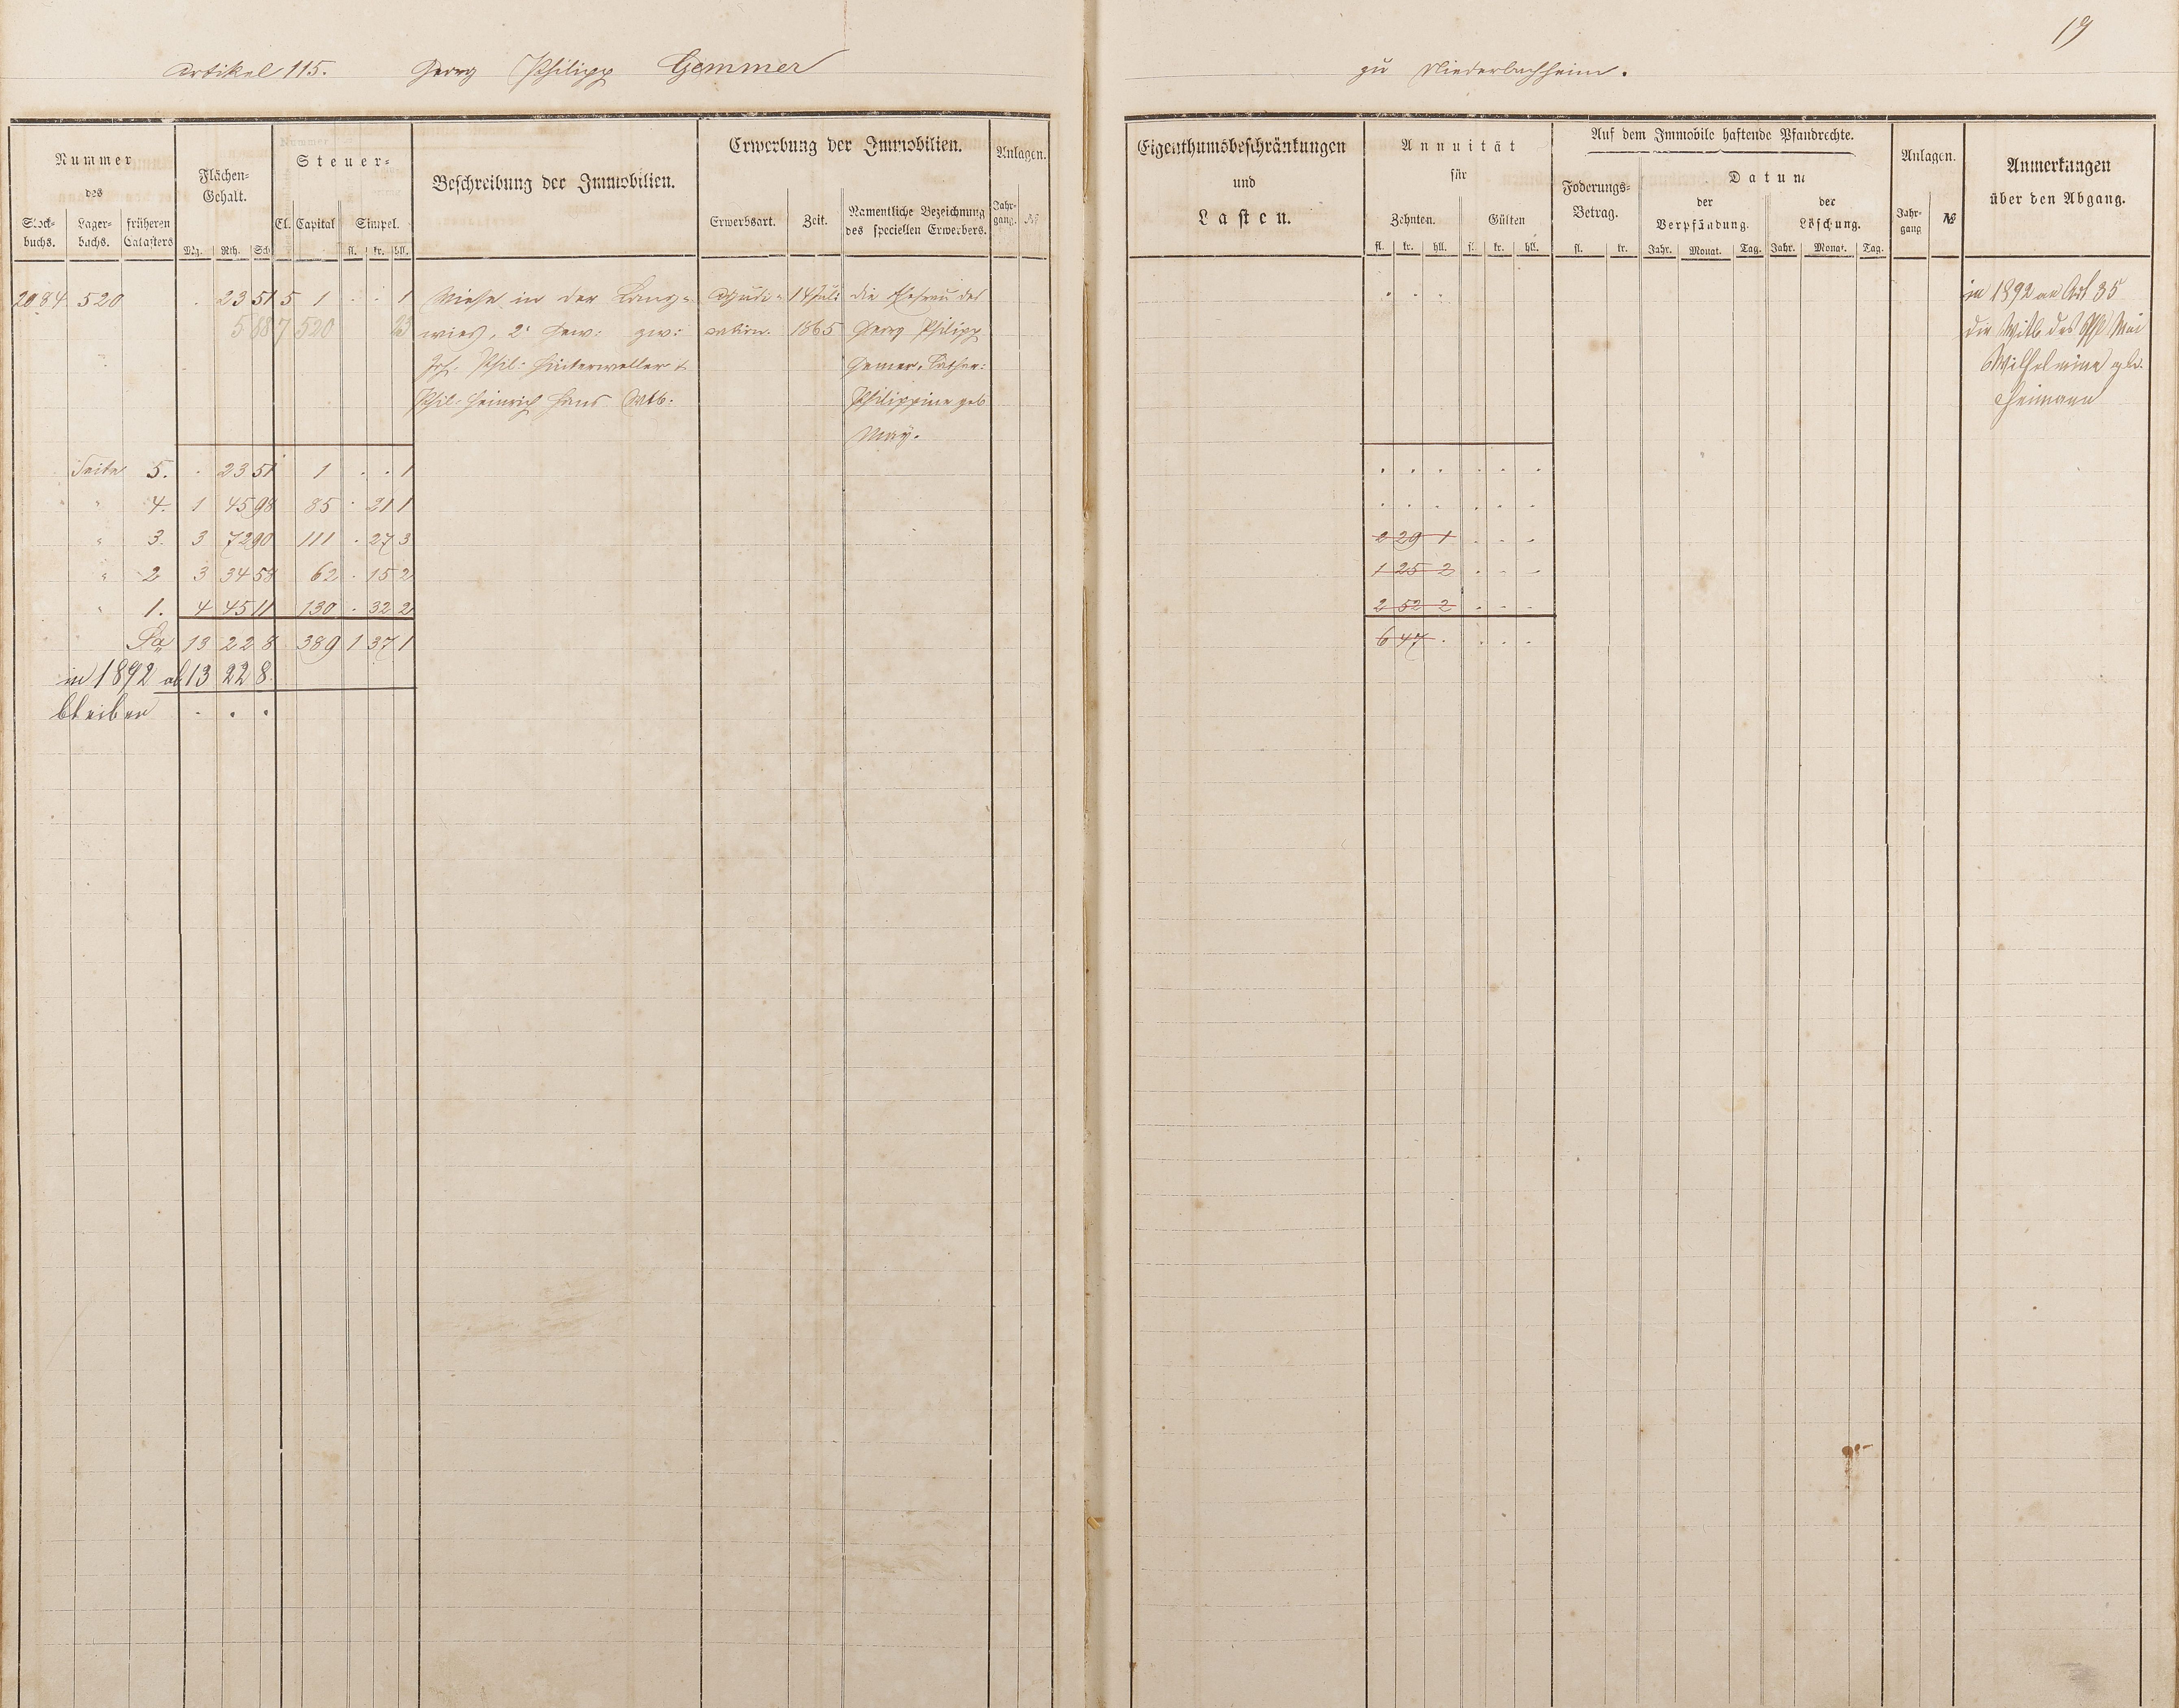 19
Artikel 115. Georg Philipp Gemmer zu Niederbachheim.
Nummer des
Stock-buchs. Lager-buchs. früheren Catasters
Flächen-Gehalt.
Mg. Rth. Sch
Steuer-
Cl. Capital Simpel.
fl. kr. hll.
Beschreibung der Immobilien.
Erwerbung der Immobilien.
Erwerbsart. Zeit. Namentliche Bezeichnung des speciellen Erwerbers.
Anlagen.
Jahr-gang. №
Eigenthumsbeschränkungen
und
Lasten.
Annuität
für
Zehnten. Gülten
fl. kr. hll. fl. kr. hll.
Auf dem Immobile haftende Pfandrechte.
Foderungs-Betrag.
fl. kr.
Datum
der Verpfändung. der Löschung.
Jahr. Monat. Tag. Jahr. Monat. Tag.
Anlagen.
Jahr-gang №
Anmerkungen
über den Abgang.
2084 520 . 23 51 5 1 . . 1 Wiese in der Lang- Adjudi- 14 Juli die Ehefrau des . . . in 1892 an Art 35
5 88 7 520 23 wies, 2' Gew: zw: cation. 1865 Georg Philipp die Witb. des Mai
Phil: Hinterweller & Gemer, Cathar: Wilhelmine geb.
Phil: Heinrich Hans Wtb. Philippine geb Heimann
May.
Seite 5. . 23 51 1 . . 1 . . . . . .
" 4. 1 45 98 85 . 21 1 . . . . . .
" 3. 3 72 90 111 . 27 3 2 29 1 . . .
" 2 3 34 58 62 . 15 2 1 25 2 . . .
" 1. 4 45 11 130 . 32 2 2 52 2 . . .
Sa 13 22 8 389 1 37 1 6 47 . . . .
in 1892 ab 13 22 8.
bleiben . . .